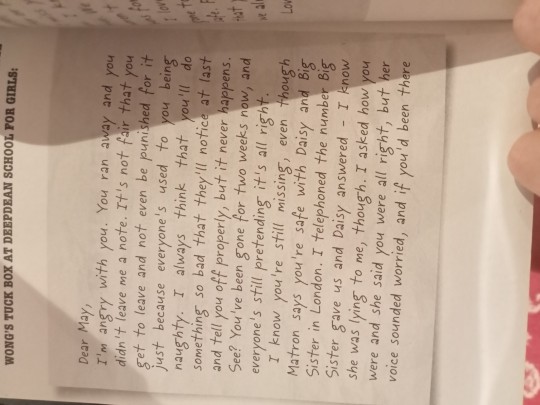 WONG'S TUCK BOX AT DEEPDEAN SCHOOL FOR GIRLS:
Dear May,
I'm angry with you. You ran away and you
didn't leave me a note. It's not fair that you
get to leave and not even be punished for it
just because everyone's used to you being
naughty. I always think that you'll do
something so bad that they'll notice at last
and tell you off properly, but it never happens.
See? You've been gone for two weeks now, and
everyone's still pretending it's all right.
I know you're still missing, even though
Matron says you're safe with Daisy and Big
Sister in London. I telephoned the number Big
Sister gave us and Daisy answered - I know
she was lying to me, though. I asked how you
were and she said you were all right, but her
voice sounded worried, and if you'd been there